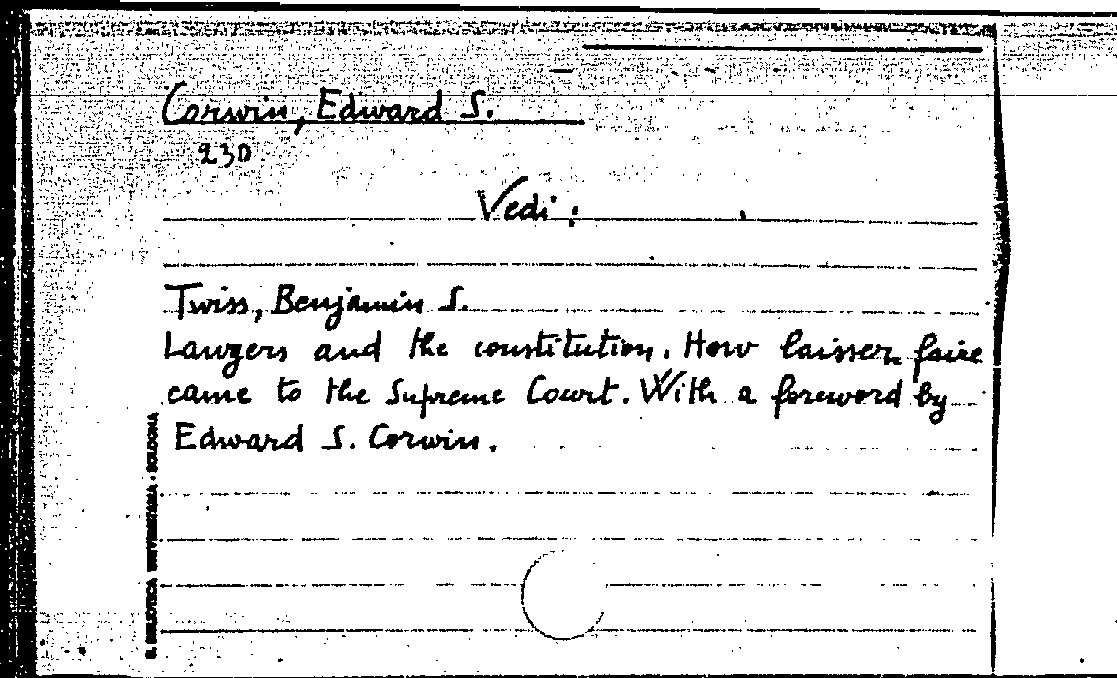 Corwin, Edward S.
230
Vedi:
Twiss, Benjamin S.
Lawyers and the constitution. How laissez faire
came to the Supreme Court. With a foreword by
Edward S. Corwin.
B. BIBLIOTECA UNIVERSITARIA - BOLOGNA